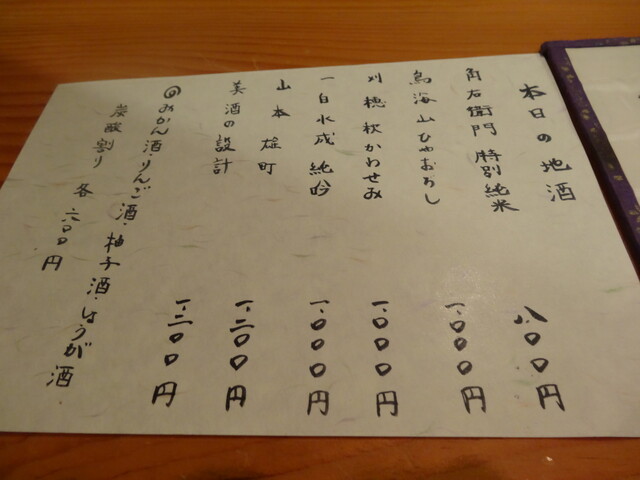 本日の地酒
角右衛門 特別純米 八〇〇円
鳥海山 ひやおろし 一、〇〇〇円
刈穂 秋かわせみ 一、〇〇〇円
一白水成 純吟 一、〇〇〇円
山本 雄町 一、二〇〇円
美酒の設計 一、三〇〇円
◎みかん酒・りんご酒・柚子酒・しょうが酒
炭酸割り 各 六〇〇円